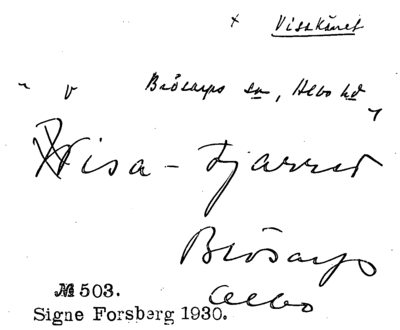 × Visskäret
Brösarps sn, Albo hd
Visa-tjärret
Brösarps
Albo
№ 503.
Signe Forsberg 1930.